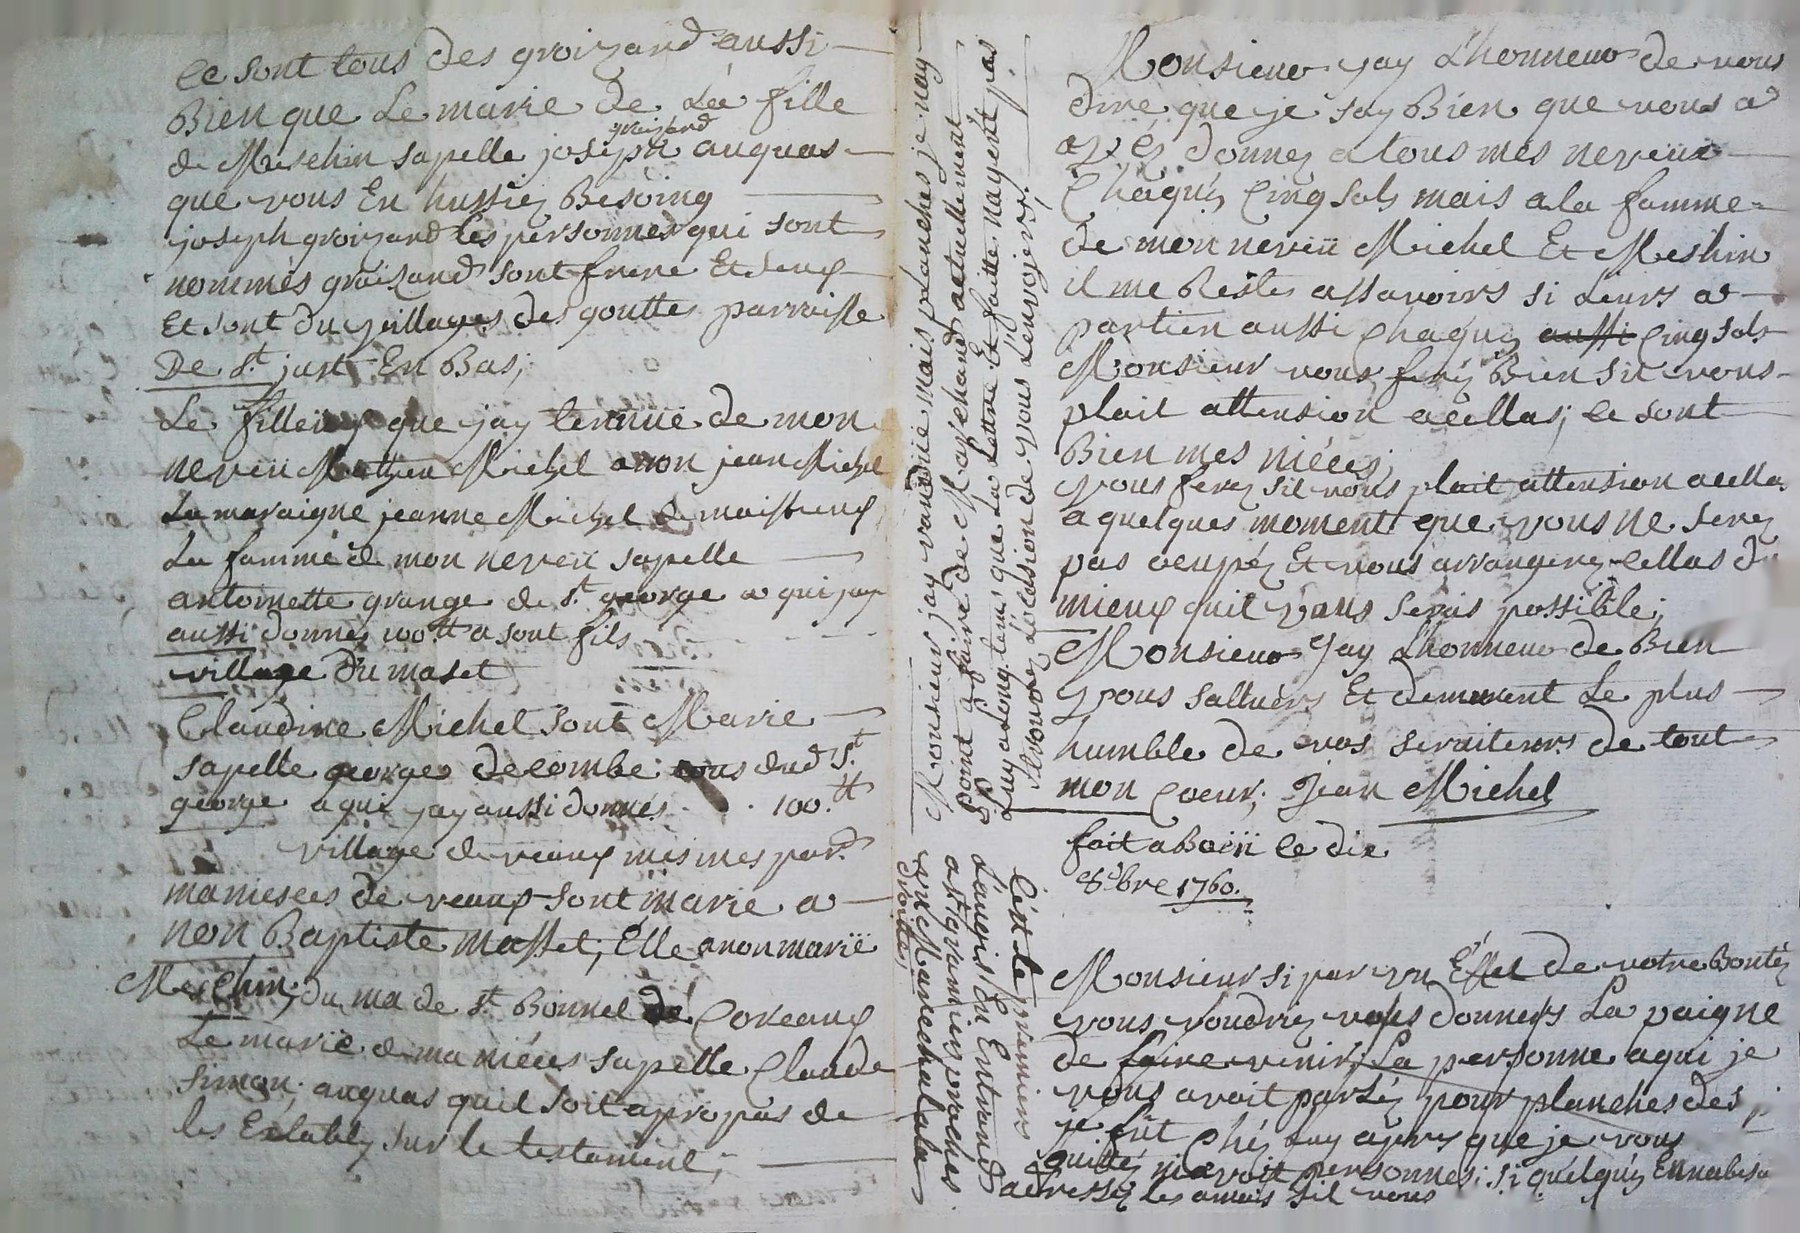 ce sont tous des groizard aussi
Bien que Le marie de La fille
de Meschin sapelle joseph groizard auquas
que vous En hussiez Besoing
joseph groizard les personnes qui sont
nommés groizard sont frere Et seuf
Et sont du village des gouttes parroisse
De St just En Bas;
Le filleuy que jay tennue de mon
neveü Mathieu Michel a non jean Michel
La maraigne jeanne Michel de
La famme de mon neveü sapelle
antoinette grange de St george a qui jay
aussi donnez 100 tt a sont fils
village du maset
Claudine Michel sont Marie
sapelle george decombe tous dud St
george a qui jay aussi donnés . . 100 tt
village de veaux mesmes pard
ma niesces de veaux sont marie a
non Baptiste Masset, Elle a non marïë
Meschin, du ma de St Bonnet de Coreaux
Le marie de ma niéces sapelle Claude
simon; auquas quil soit apropas de
les Establi sur le testament;
Monsieur jay vandue mais planches je nay
point a faire de Marchand actuellement
Luy a Long tems que La Lettre Et faitte nayent pas
trouvez Locasion de vous Lenvojers.
Cest le premiers
Lauois En Entrand
ast gramiers proches
un Marechal ala
droitte,
Monsieur jay Lhonneur de vous
dire que je say Bien que vous a
avés donnez a tous mes neveux
Chaques Cinq sols mais a la famme
de mon neveü Michel Et Meshin
il me Reste assavoirs si Leurs a
partien aussi Chaques aussi Cinq sols
Monsieur vous ferez Bien sil vous
plait attension acellas; ce sont
Bien mes niéces;
vous ferez sil vous plait attension acellas
a quelques moment que vous ne serez
pas ocupéz Et vous arrangerez cellas du
mieux quil vous serois possible;
Monsieur Jay Lhonneur de Bien
vous salluérs Et demeurent Le plus
humble de vos serviteurs de tout
mon Coeur; Jean Michel
fait a Boën ce dix
8bre 1760.
Monsieur si par un Effet de votre Bontéz
vous voudriez vous donners La paigne
de faire venir; La personne a qui je
vous avoit parléz pour planches des
je fut Chéz Luy apres que je vous
quittéz navoit personnes; si quelques Ennabesoin
adressez les amais sil vous